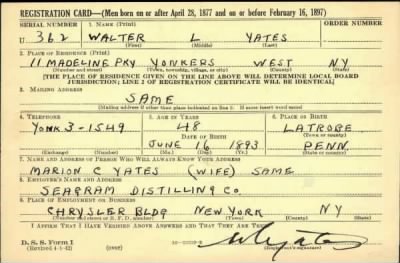 REGISTRATION CARD—(Men born on or after April 28, 1877 and on or before February 16, 1897)
SERIAL NUMBER 1. NAME (Print) ORDER NUMBER
U 362 WALTER L YATES
(First) (Middle) (Last)
2. PLACE OF RESIDENCE (Print)
11 MADELINE PKY YONKERS WEST NY
(Number and street) (Town, township, village, or city) (County) (State)
[THE PLACE OF RESIDENCE GIVEN ON THE LINE ABOVE WILL DETERMINE LOCAL BOARD
JURISDICTION; LINE 2 OF REGISTRATION CERTIFICATE WILL BE IDENTICAL]
3. MAILING ADDRESS
SAME
[Mailing address if other than place indicated on line 2. If same insert word same]
4. TELEPHONE 5. AGE IN YEARS 6. PLACE OF BIRTH
YONK 3-1549 48 LATROBE
DATE OF BIRTH (Town or county)
JUNE 16 1893 PENN.
(Exchange) (Number) (Mo.) (Day) (Yr.) (State or country)
7. NAME AND ADDRESS OF PERSON WHO WILL ALWAYS KNOW YOUR ADDRESS
MARION C YATES (WIFE) SAME
8. EMPLOYER'S NAME AND ADDRESS
SEAGRAM DISTILLING CO.
9. PLACE OF EMPLOYMENT OR BUSINESS
CHRYSLER BLDG NEW YORK NY
(Number and street or R. F. D. number) (Town) (County) (State)
I AFFIRM THAT I HAVE VERIFIED ABOVE ANSWERS AND THAT THEY ARE TRUE.
D. S. S. Form 1
(Revised 4-1-42) (over)